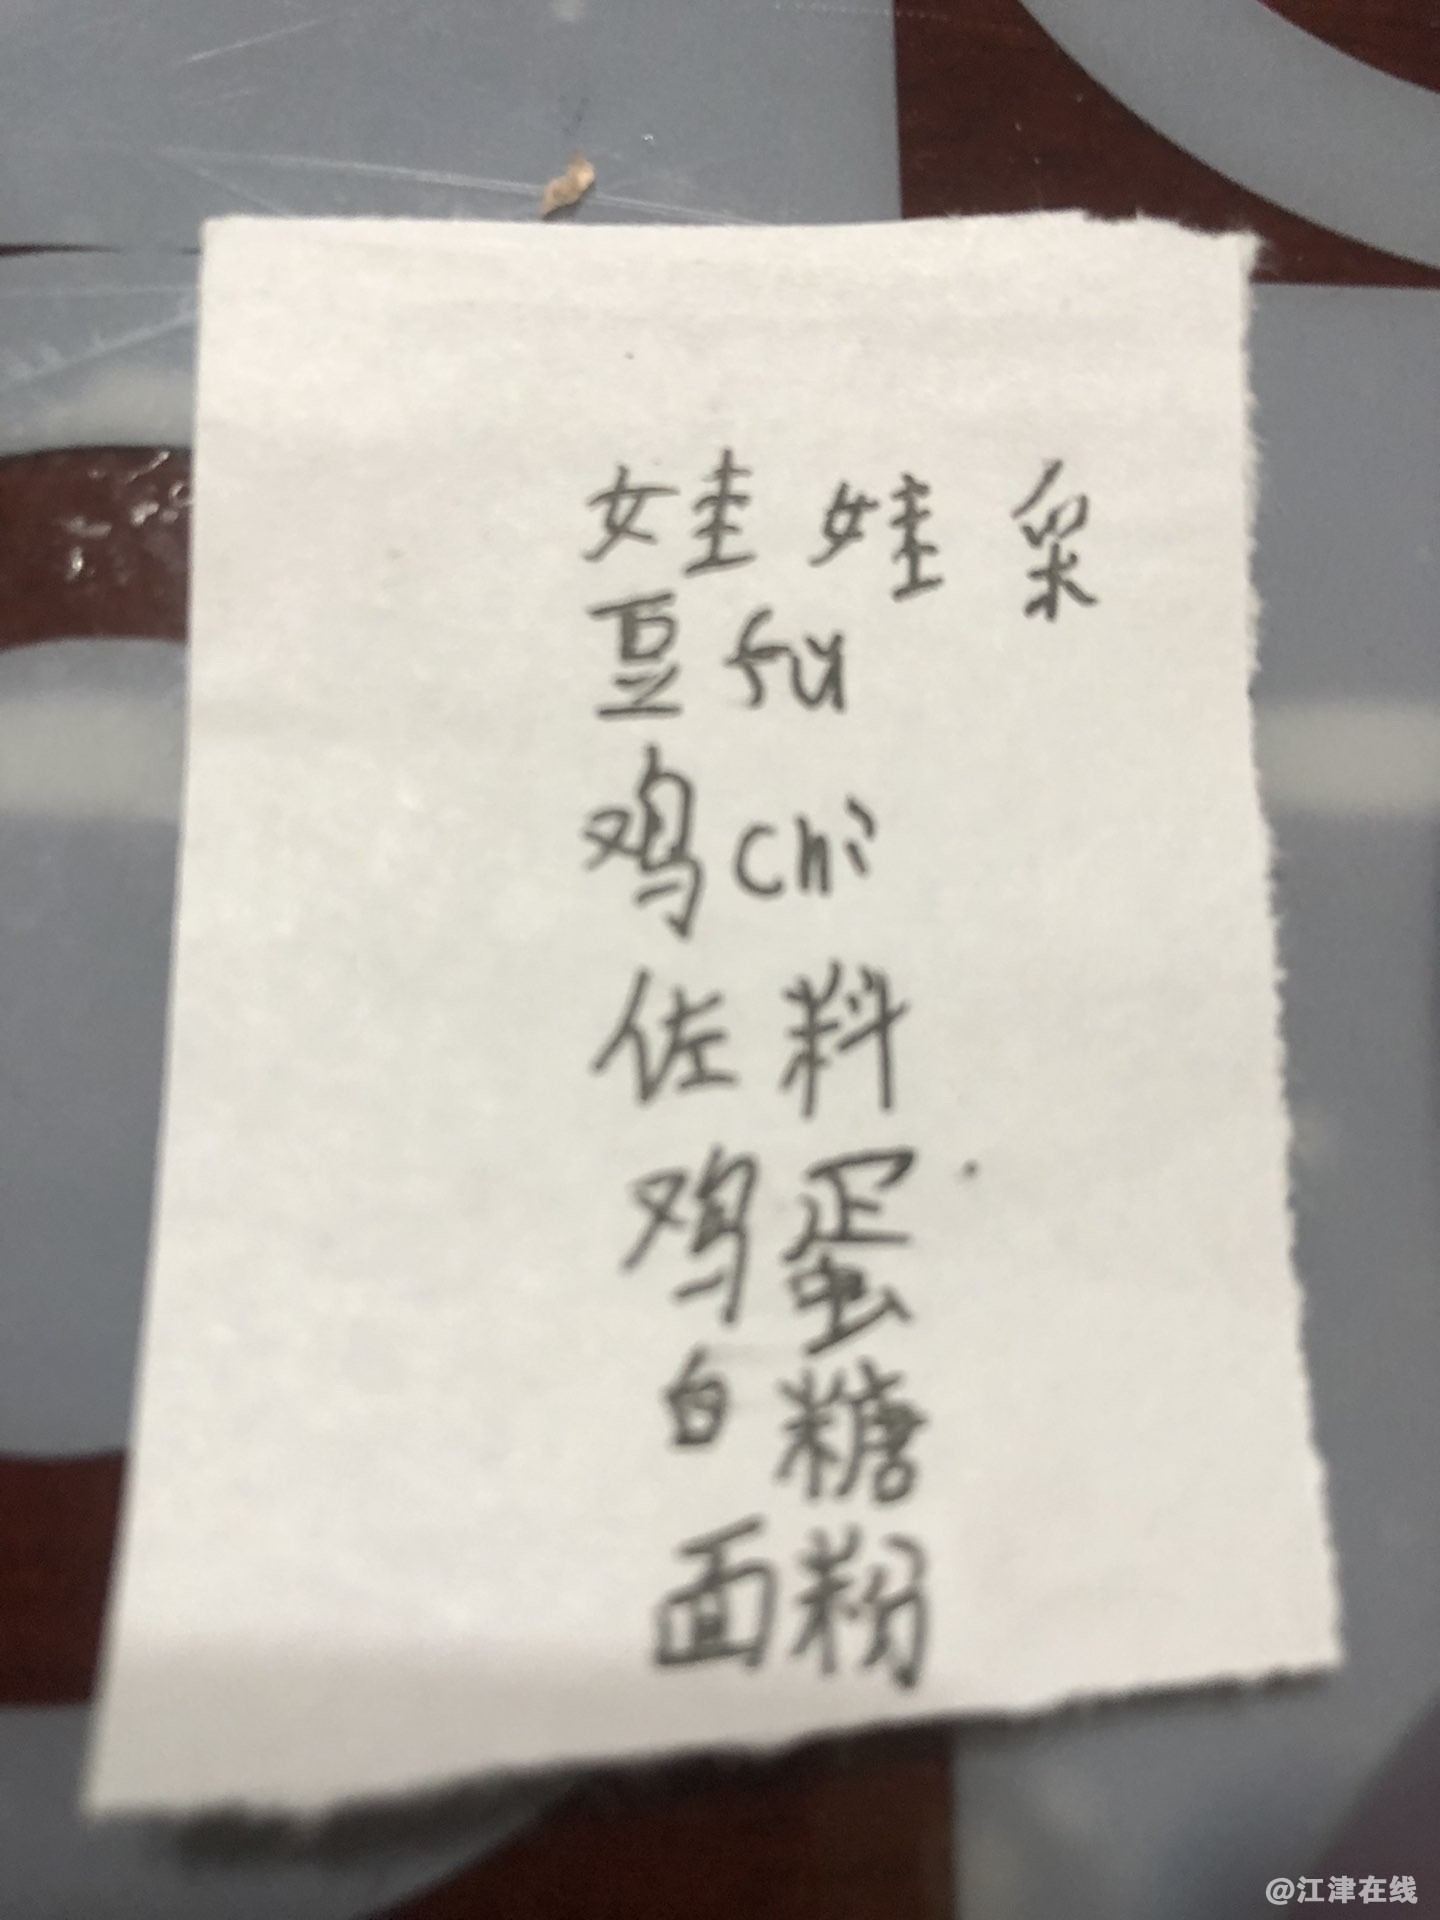 娃娃菜
豆fu
鸡chi
佐料
鸡蛋
白糖
面粉
@江津在线